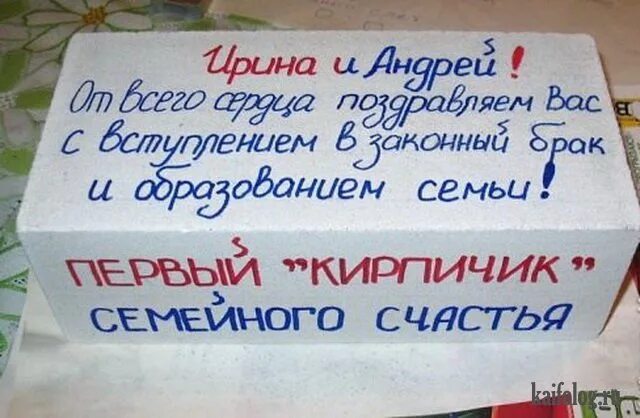 Ирина и Андрей!
От всего сердца поздравляем Вас
с вступлением в законный брак
и образованием семьи!
ПЕРВЫЙ "КИРПИЧИК"
СЕМЕЙНОГО СЧАСТЬЯ
kaifolog.ru